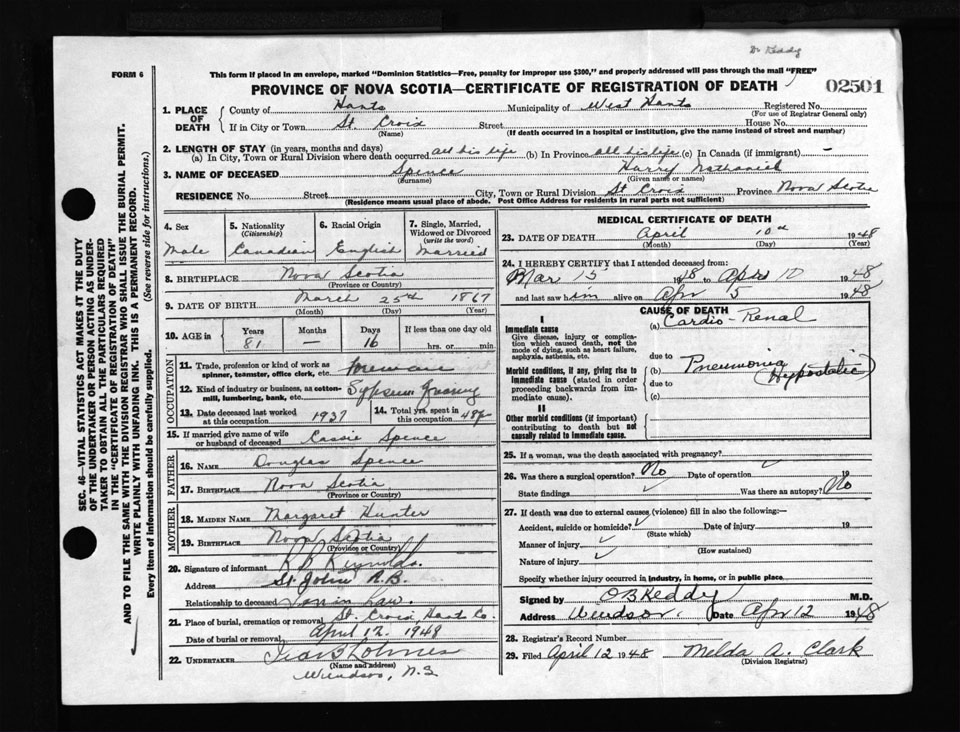 Dr Keddy
FORM 6
This form if placed in an envelope, marked "Dominion Statistics—Free, penalty for improper use $300," and properly addressed will pass through the mail "FREE"
PROVINCE OF NOVA SCOTIA—CERTIFICATE OF REGISTRATION OF DEATH
02501
1. PLACE OF DEATH
County of Hants Municipality of West Hants Registered No.
(For use of Registrar General only)
If in City or Town St. Croix Street House No.
(Name) (If death occurred in a hospital or institution, give the name instead of street and number)
2. LENGTH OF STAY (in years, months and days)
(a) In City, Town or Rural Division where death occurred all his life (b) In Province all his life (c) In Canada (if immigrant) —
3. NAME OF DECEASED Spence Harry Nathaniel
(Surname) (Given name or names)
RESIDENCE No. Street City, Town or Rural Division St Croix Province Nova Scotia
(Residence means usual place of abode. Post Office Address for residents in rural parts not sufficient)
4. Sex
Male
5. Nationality
(Citizenship)
Canadian
6. Racial Origin
English
7. Single, Married, Widowed or Divorced
(write the word)
Married
8. BIRTHPLACE Nova Scotia
(Province or Country)
9. DATE OF BIRTH March 25th 1867
(Month) (Day) (Year)
10. AGE in
Years Months Days If less than one day old
81 — 16 hrs. or min.
OCCUPATION
11. Trade, profession or kind of work as spinner, teamster, office clerk, etc. Foreman
12. Kind of industry or business, as cotton-mill, lumbering, bank, etc. Gypsum Quarry
13. Date deceased last worked at this occupation 1937
14. Total yrs. spent in this occupation 48 yrs
15. If married give name of wife or husband of deceased Cassie Spence
FATHER
16. Name Douglas Spence
17. Birthplace Nova Scotia
(Province or Country)
MOTHER
18. Maiden Name Margaret Hunter
19. Birthplace Nova Scotia
(Province or Country)
20. Signature of informant Reynolds
Address St John N.B.
Relationship to deceased Son in Law.
21. Place of burial, cremation or removal St. Croix Hants Co.
Date of burial or removal April 12. 1948
22. UNDERTAKER
(Name and address)
Windsor, N.S
MEDICAL CERTIFICATE OF DEATH
23. DATE OF DEATH April 10th 1948
(Month) (Day) (Year)
24. I HEREBY CERTIFY that I attended deceased from:
Mar 15 1948 to Apr 10 1948
and last saw him alive on Apr 5 1948
CAUSE OF DEATH
I
Immediate cause
Give disease, injury or complication which caused death, not the mode of dying, such as heart failure, asphyxia, asthenia, etc.
(a) Cardio-Renal
due to
Morbid conditions, if any, giving rise to immediate cause (stated in order proceeding backwards from immediate cause).
(b) Pneumonia (Hypostatic)
due to
(c)
II
Other morbid conditions (if important) contributing to death but not causally related to immediate cause.
25. If a woman, was the death associated with pregnancy?
26. Was there a surgical operation? No Date of operation 19
State findings Was there an autopsy? No
27. If death was due to external causes (violence) fill in also the following:—
Accident, suicide or homicide? Date of injury 19
(State which)
Manner of injury
(How sustained)
Nature of injury
Specify whether injury occurred in industry, in home, or in public place
Signed by O B Keddy M.D.
Address Windsor. Date Apr 12 1948
28. Registrar's Record Number
29. Filed April 12 1948 Melda A. Clark
(Division Registrar)
SEC. 46—VITAL STATISTICS ACT MAKES IT THE DUTY
OF THE UNDERTAKER OR PERSON ACTING AS UNDER-
TAKER TO OBTAIN ALL THE PARTICULARS REQUIRED
IN THE "CERTIFICATE OF REGISTRATION OF DEATH"
AND TO FILE THE SAME WITH THE DIVISION REGISTRAR WHO SHALL ISSUE THE BURIAL PERMIT.
WRITE PLAINLY WITH UNFADING INK. THIS IS A PERMANENT RECORD.
Every item of information should be carefully supplied. (See reverse side for instructions.)